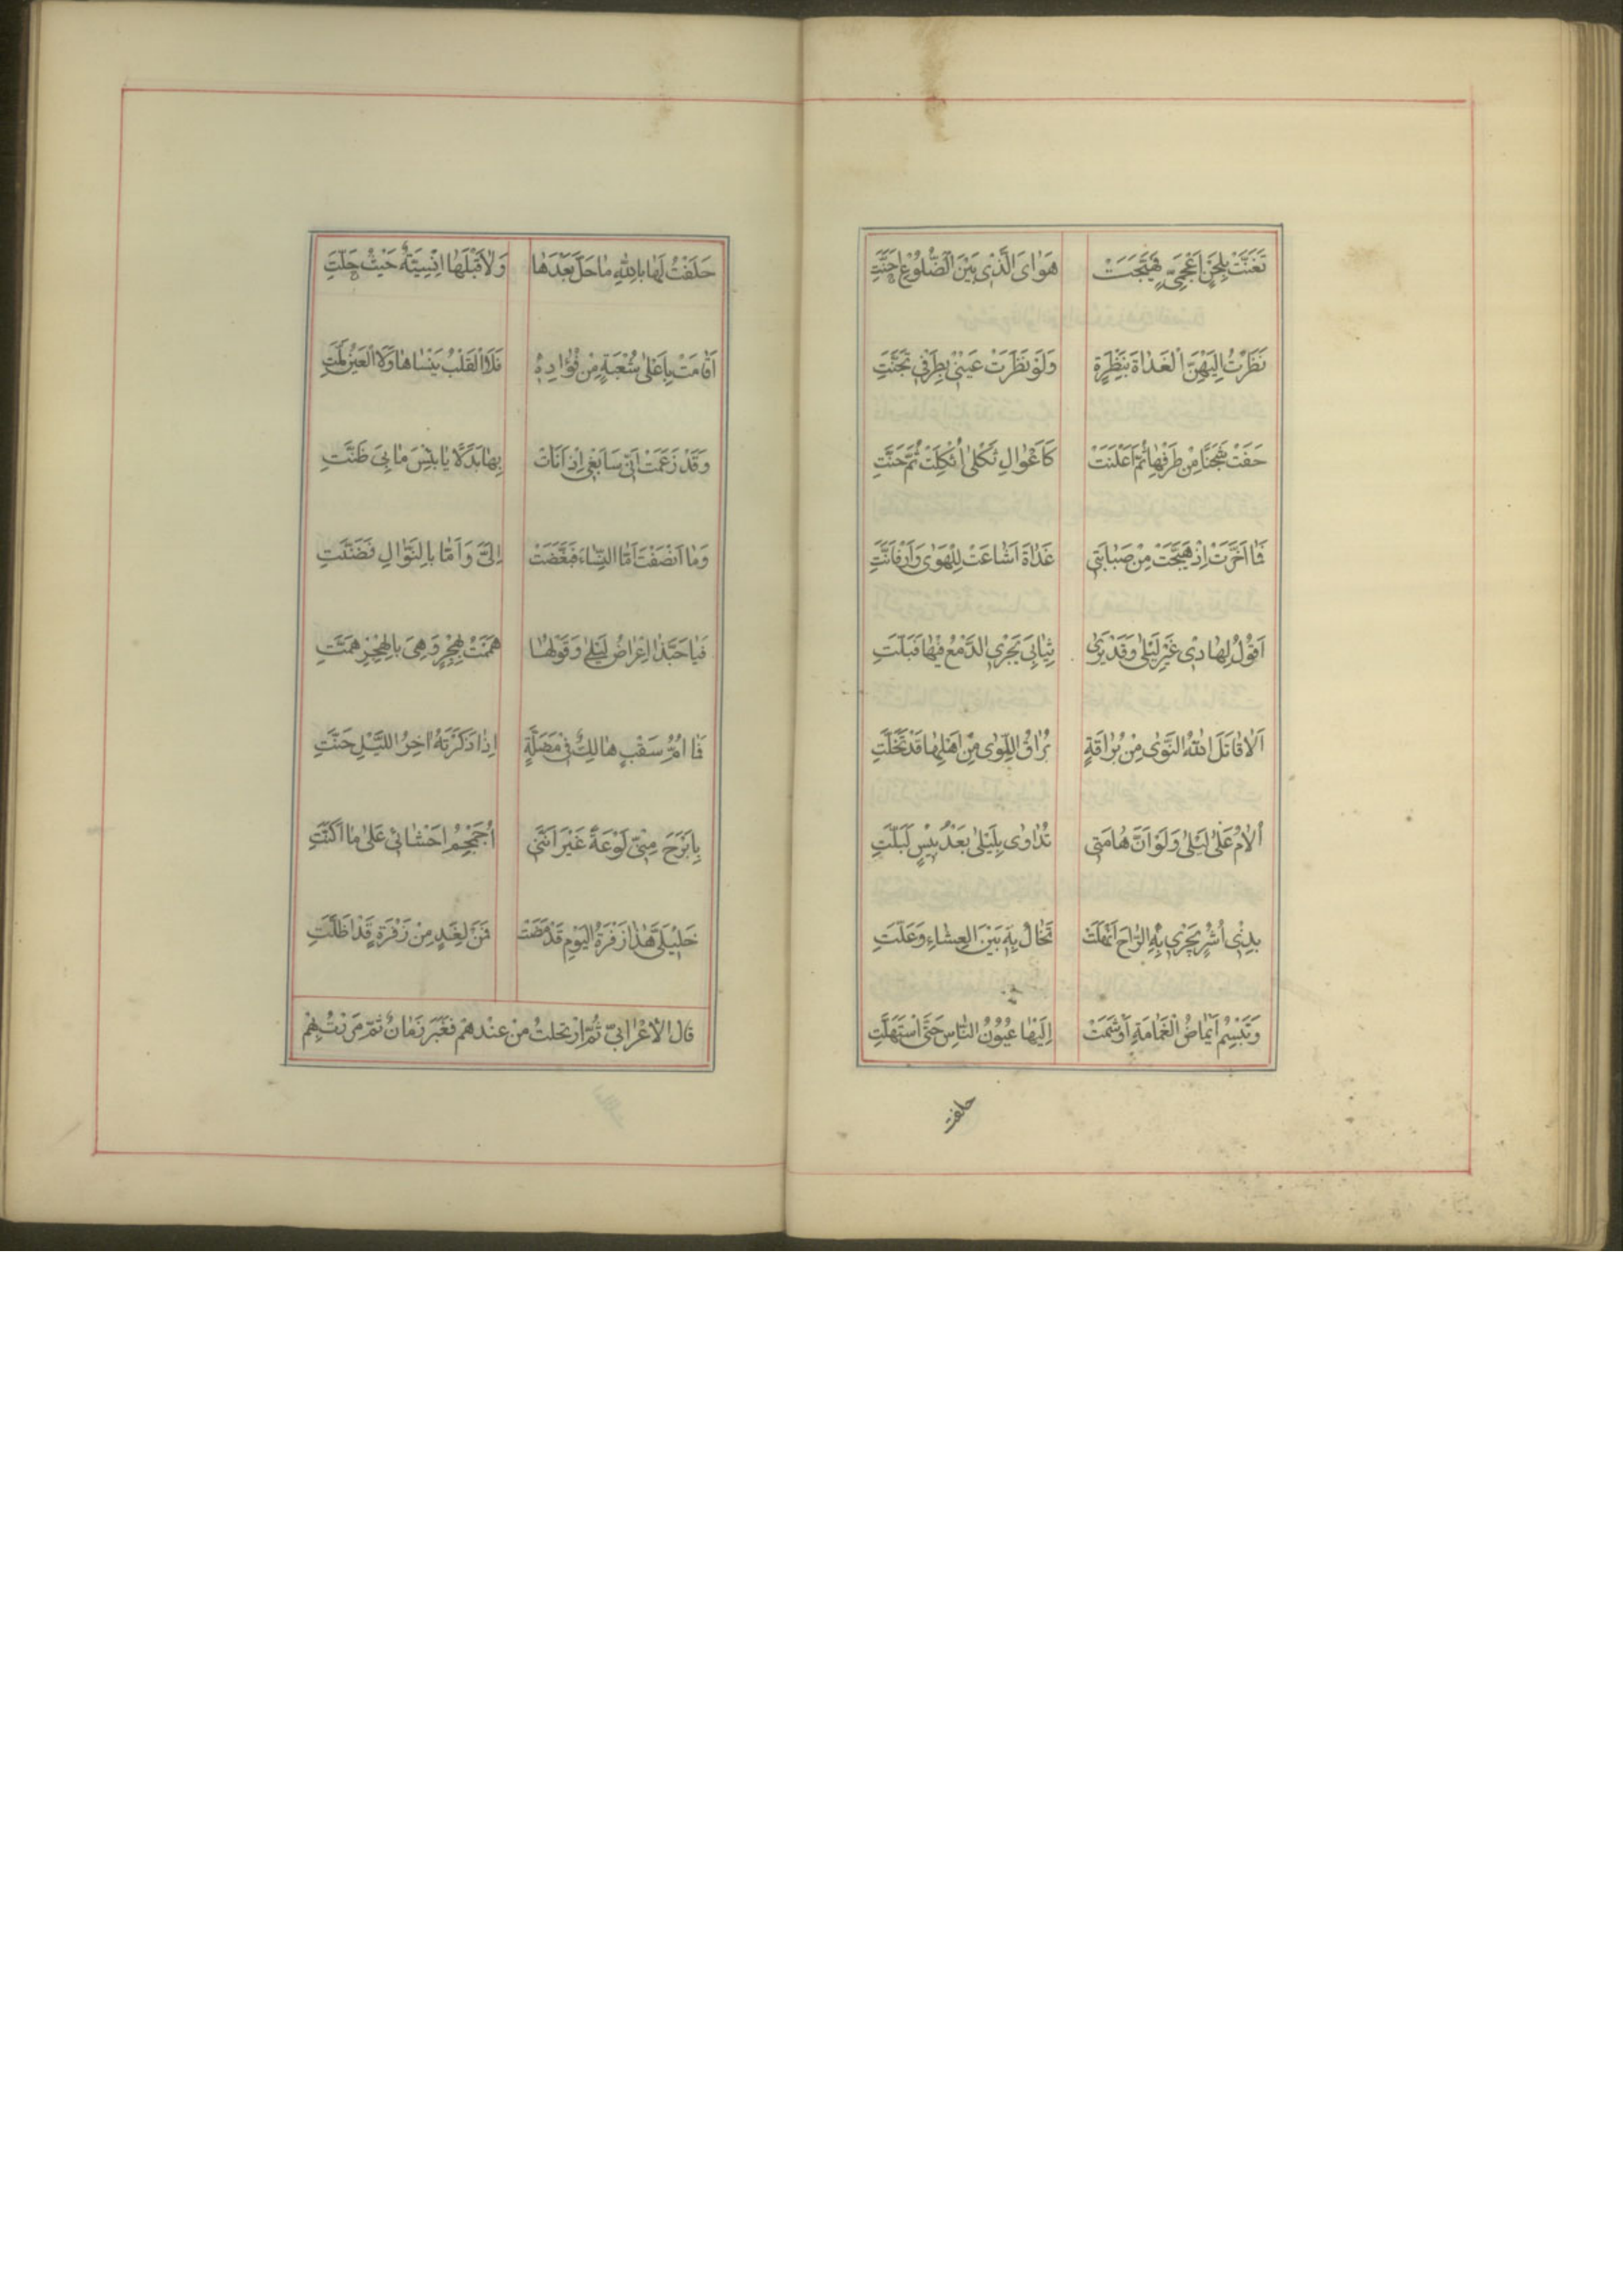 تَغَنَّتْ بِلَحْنٍ اَعْجَمِيٍّ فَهَيَّجَتْ هَوٰاىَ الَّذٖى بَيْنَ الضُّلُوْعِ اَجَنَّتِ
نَظَرْتُ اِلَيْهِنَّ الْغَدٰاةَ بِنَظْرَةٍ وَلَوْ نَظَرَتْ عَيْنٖى بِطَرْفٖى تَجَنَّتِ
حَفَتْ شَجَنًا مِنْ طَرْفِهٰا ثُمَّ اَعْلَنَتْ كَاَعْوٰالِ ثَكْلٰى اُثْكِلَتْ ثُمَّ حَنَّتِ
فَمٰا اَخَّرَتْ اِذْ هَيَّجَتْ مِنْ صَبٰابَتٖى غَدٰاةَ اَشٰاعَتْ لِلْهَوٰى وَاَرْفَانَّتِ
اَقُوْلُ لِهٰادٖى غَيْرِ لَيْلٰى وَقَدْ يَرٰى ثِيٰابٖى يَجْرٖى الدَّمْعُ فٖيْهٰا فَبَلَّتِ
اَلاٰ قٰاتَلَ اللّٰهُ النَّوٰى مِنْ بُرٰاقَةٍ بُرٰاقُ اللِّوٰى مِنْ اَهْلِهٰا قَدْ تَخَلَّتِ
اُلاٰمُ عَلٰى لَيْلٰى وَلَوْ اَنَّ هٰامَتٖى تُدٰاوٰى بِلَيْلٰى بَعْدَ يَبْسٍ لَبَلَّتِ
بِذِىْ اُشُرٍ يَجْرٖى بِهِ الرّٰاحَ اَنْهَلَتْ تَخٰالُ بِهٖ بَيْنَ الْعِشٰاءِ وَعَلَّتِ
وَتَبْسِمُ اٖيْمٰاضُ الْغَمٰامَةِ اَوْ شَمَتْ اِلَيْهٰا عُيُوْنُ النّٰاسِ حَتّٰى اسْتَهَلَّتِ
حلفت
حَلَفْتُ لَهٰا بِاللّٰهِ مٰا حَلَّ بَعْدَهٰا وَلاٰ قَبْلَهٰا اِنْسِيَّةٌ حَيْثُ حَلَّتِ
اَقٰامَتْ بِاَعْلٰى شُعْبَةٍ مِنْ فُؤٰادِهٖ فَلاَ الْقَلْبُ يَنْسٰاهٰا وَلاَ الْعَيْنُ مَلَّتِ
وَقَدْ زَعَمَتْ اَنّٖى سَاَبْغٖى اِذَا نَاَتْ بِهٰا بَدَلاً يٰا بِئْسَ مٰا بِىَ ظَنَّتِ
وَمٰا اَنْصَفَتْ اَمَّا النِّسٰاءَ فَبَغَّضَتْ اِلَىَّ وَاَمّٰا بِالنَّوٰالِ فَضَنَّتِ
فَيٰا حَبَّذٰا اِعْرٰاضُ لَيْلٰى وَقَوْلُهٰا هَمَمْتَ بِهَجْرٍ وَهِىَ بِالْهَجْرِ هَمَّتِ
فَمٰا اُمُّ سَقْبٍ هٰالِكٍ فٖى مَضَلَّةٍ اِذٰا ذَكَرَتْهُ اٰخِرَ اللَّيْلِ حَنَّتِ
بِاَبْرَحَ مِنّٖى لَوْعَةً غَيْرَ اَنَّنٖى اُجَمْجِمُ اَحْشٰائٖى عَلٰى مٰا اَكَنَّتِ
خَلٖيْلَىَّ هٰذٰا زَفْرَةُ الْيَوْمِ قَدْ مَضَتْ فَمَنْ لِغَدٍ مِنْ زَفْرَةٍ قَدْ اَظَلَّتِ
قٰال الْاَعْرٰابىّ ثُمّ ارتحلتُ منْ عندهمْ فغَبَرَ زَمٰانٌ ثمّ مَرَرْتُ بِهِمْ